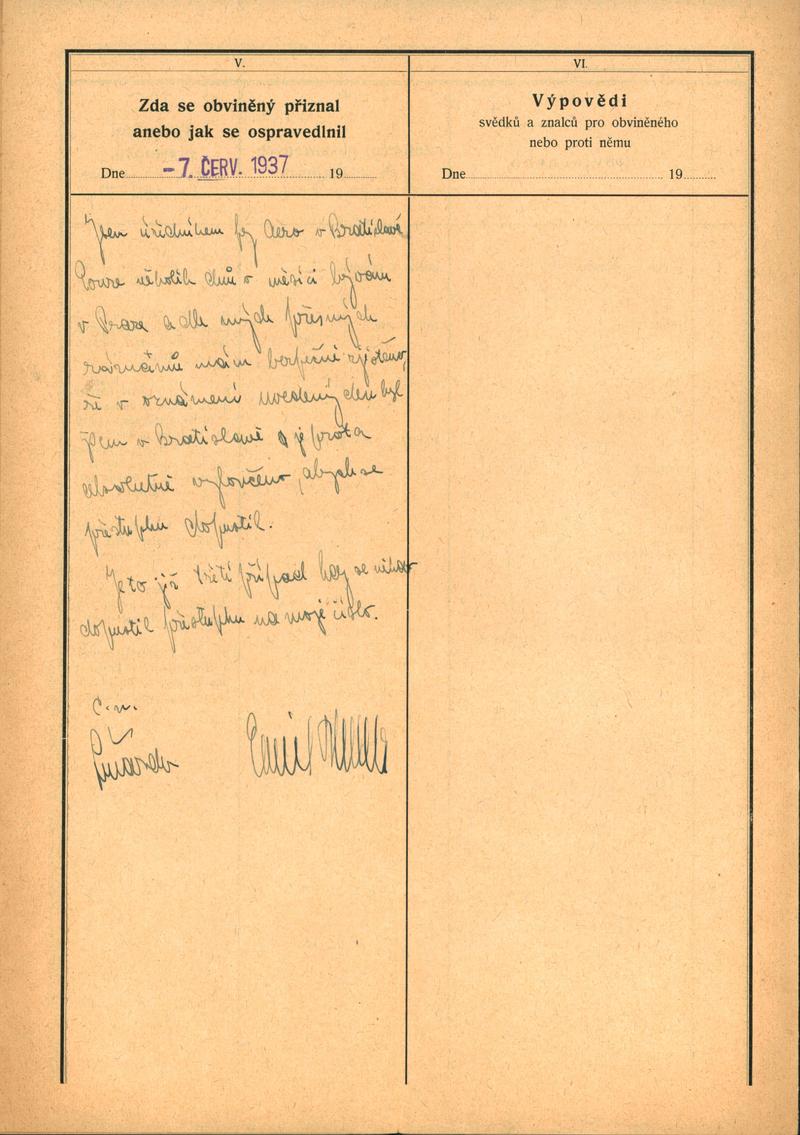 V.
Zda se obviněný přiznal
anebo jak se ospravedlnil
Dne -7. ČERV. 1937 19
VI.
Výpovědi
svědků a znalců pro obviněného
nebo proti němu
Dne 19
Jsem úředníkem fy Aero v Bratislavě
Pouze několik dnů v měsíci bývám
v Praze a dle mých přesných
záznamů mám bezpečně zjištěno,
že v oznámení uvedený den byl
jsem v Bratislavě a je proto
absolutně vyloučeno, abych se
přestupku dopustil.
Je to již třetí případ kdy se někdo
dopustil přestupku na moje číslo.
Č. v.
Emil